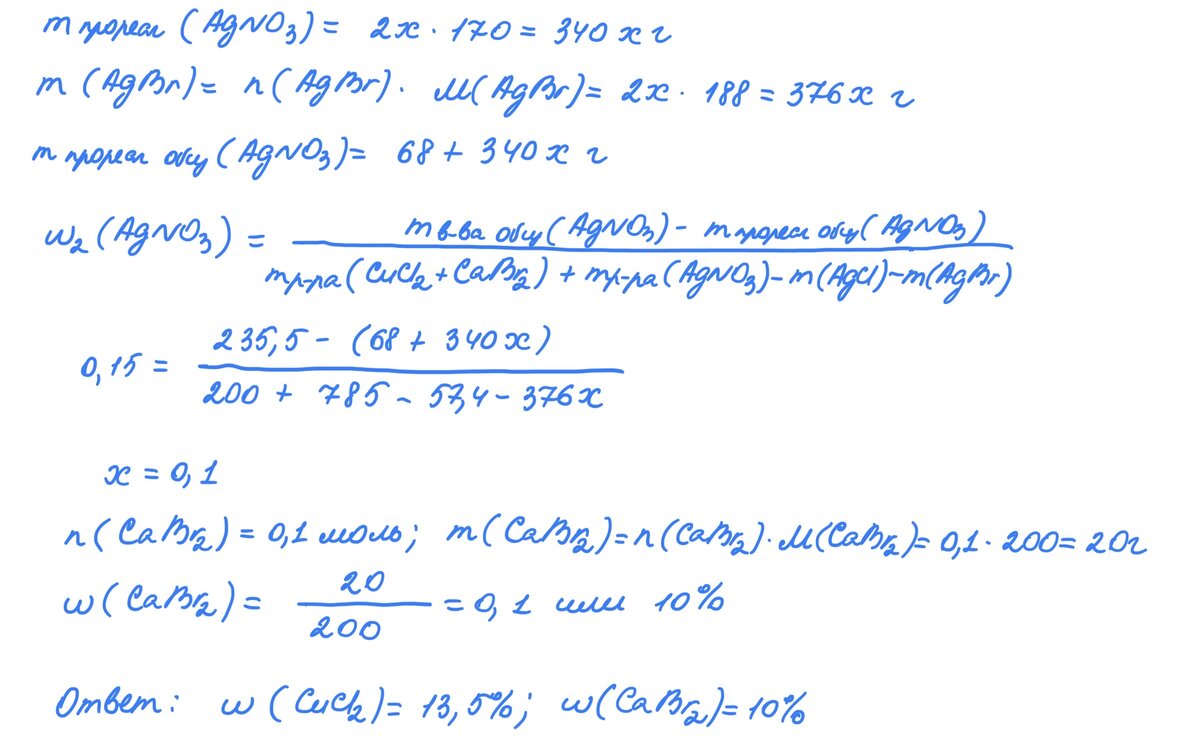 m прореаг (AgNO₃) = 2x · 170 = 340 x г
m (AgBr) = n (AgBr) · M(AgBr) = 2x · 188 = 376 x г
m прореаг общ (AgNO₃) = 68 + 340 x г
w₂ (AgNO₃) = (m в-ва общ (AgNO₃) - m прореаг общ (AgNO₃)) / (m р-ра (CuCl₂ + CaBr₂) + m р-ра (AgNO₃) - m (AgCl) - m (AgBr))
0,15 = (235,5 - (68 + 340 x)) / (200 + 785 - 57,4 - 376 x)
x = 0,1
n (CaBr₂) = 0,1 моль; m (CaBr₂) = n (CaBr₂) · M(CaBr₂) = 0,1 · 200 = 20г
w (CaBr₂) = 20 / 200 = 0,1 или 10%
Ответ: w (CuCl₂) = 13,5%; w (CaBr₂) = 10%